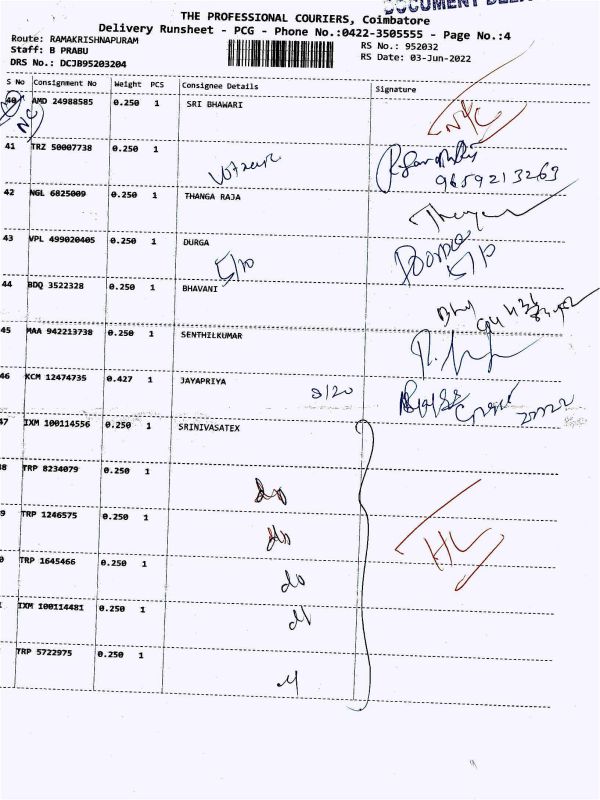 DOCUMENT
THE PROFESSIONAL COURIERS, Coimbatore
Delivery Runsheet - PCG - Phone No.:0422-3505555 - Page No.:4
Route: RAMAKRISHNAPURAM
RS No.: 952032
Staff: B PRABU
RS Date: 03-Jun-2022
DRS No.: DCJB95203204
S No Consignment No Weight PCS Consignee Details Signature
40 AMD 24988585 0.250 1 SRI BHAWARI
NC N/C
41 TRZ 50007738 0.250 1
9659213263
42 NGL 6825009 0.250 1 THANGA RAJA
43 VPL 499020405 0.250 1 DURGA
5/10
44 BDQ 3522328 0.250 1 BHAVANI
45 MAA 942213738 0.250 1 SENTHILKUMAR
46 KCM 12474735 0.427 1 JAYAPRIYA
8/20
47 IXM 100114556 0.250 1 SRINIVASATEX
8 TRP 8234079 0.250 1
do
9 TRP 1246575 0.250 1
do HL
0 TRP 1645466 0.250 1
do
IXM 100114481 0.250 1
TRP 5722975 0.250 1